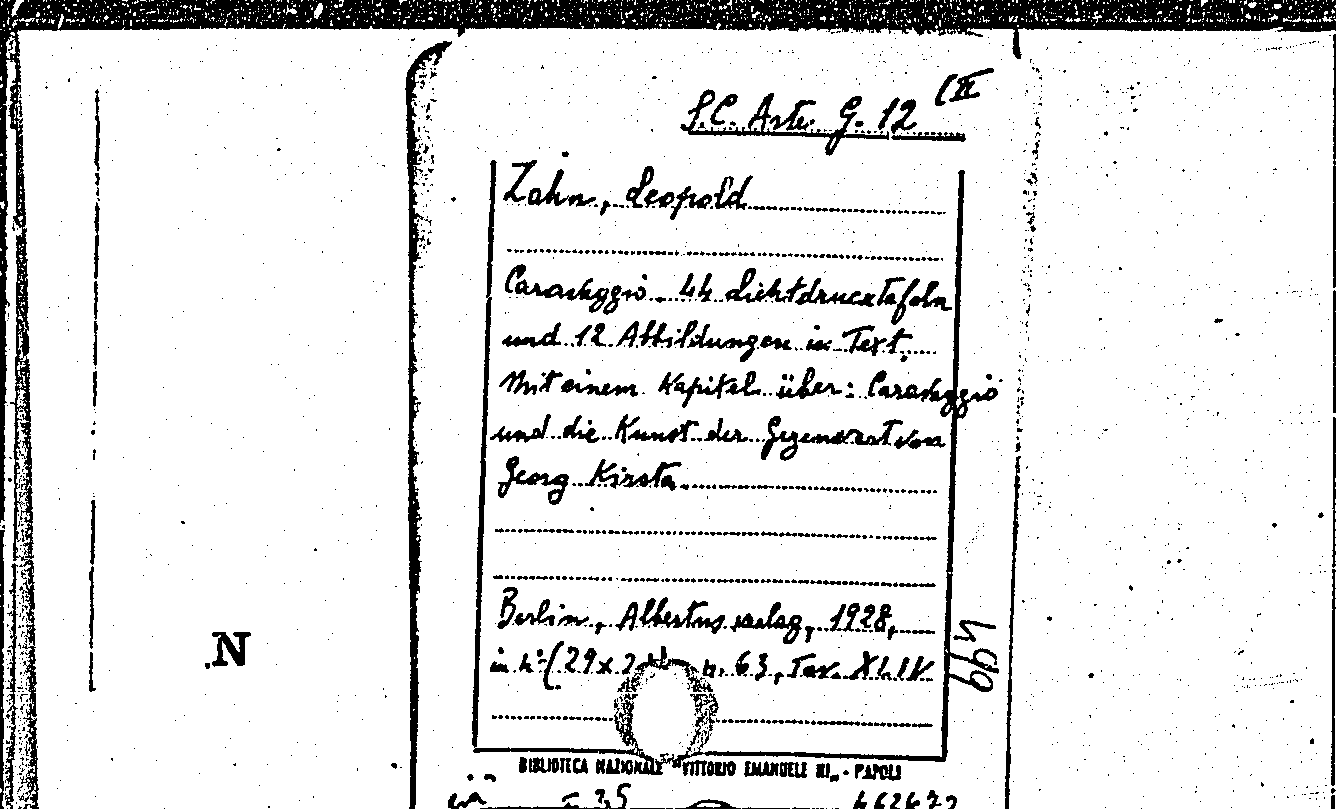 S.C. Arte G. 12 (II
Zahn, Leopold
Caravaggio. 44 Lichtdrucktafeln
und 12 Abbildungen in Text.
Mit einem Kapitel über: Caravaggio
und die Kunst der Gegenwart von
Georg Kirsta.
Berlin, Albertus verlag, 1928,
in 4° (29x 63, Tav. XLIV
499
N
BIBLIOTECA NAZIONALE "VITTORIO EMANUELE III„ - NAPOLI